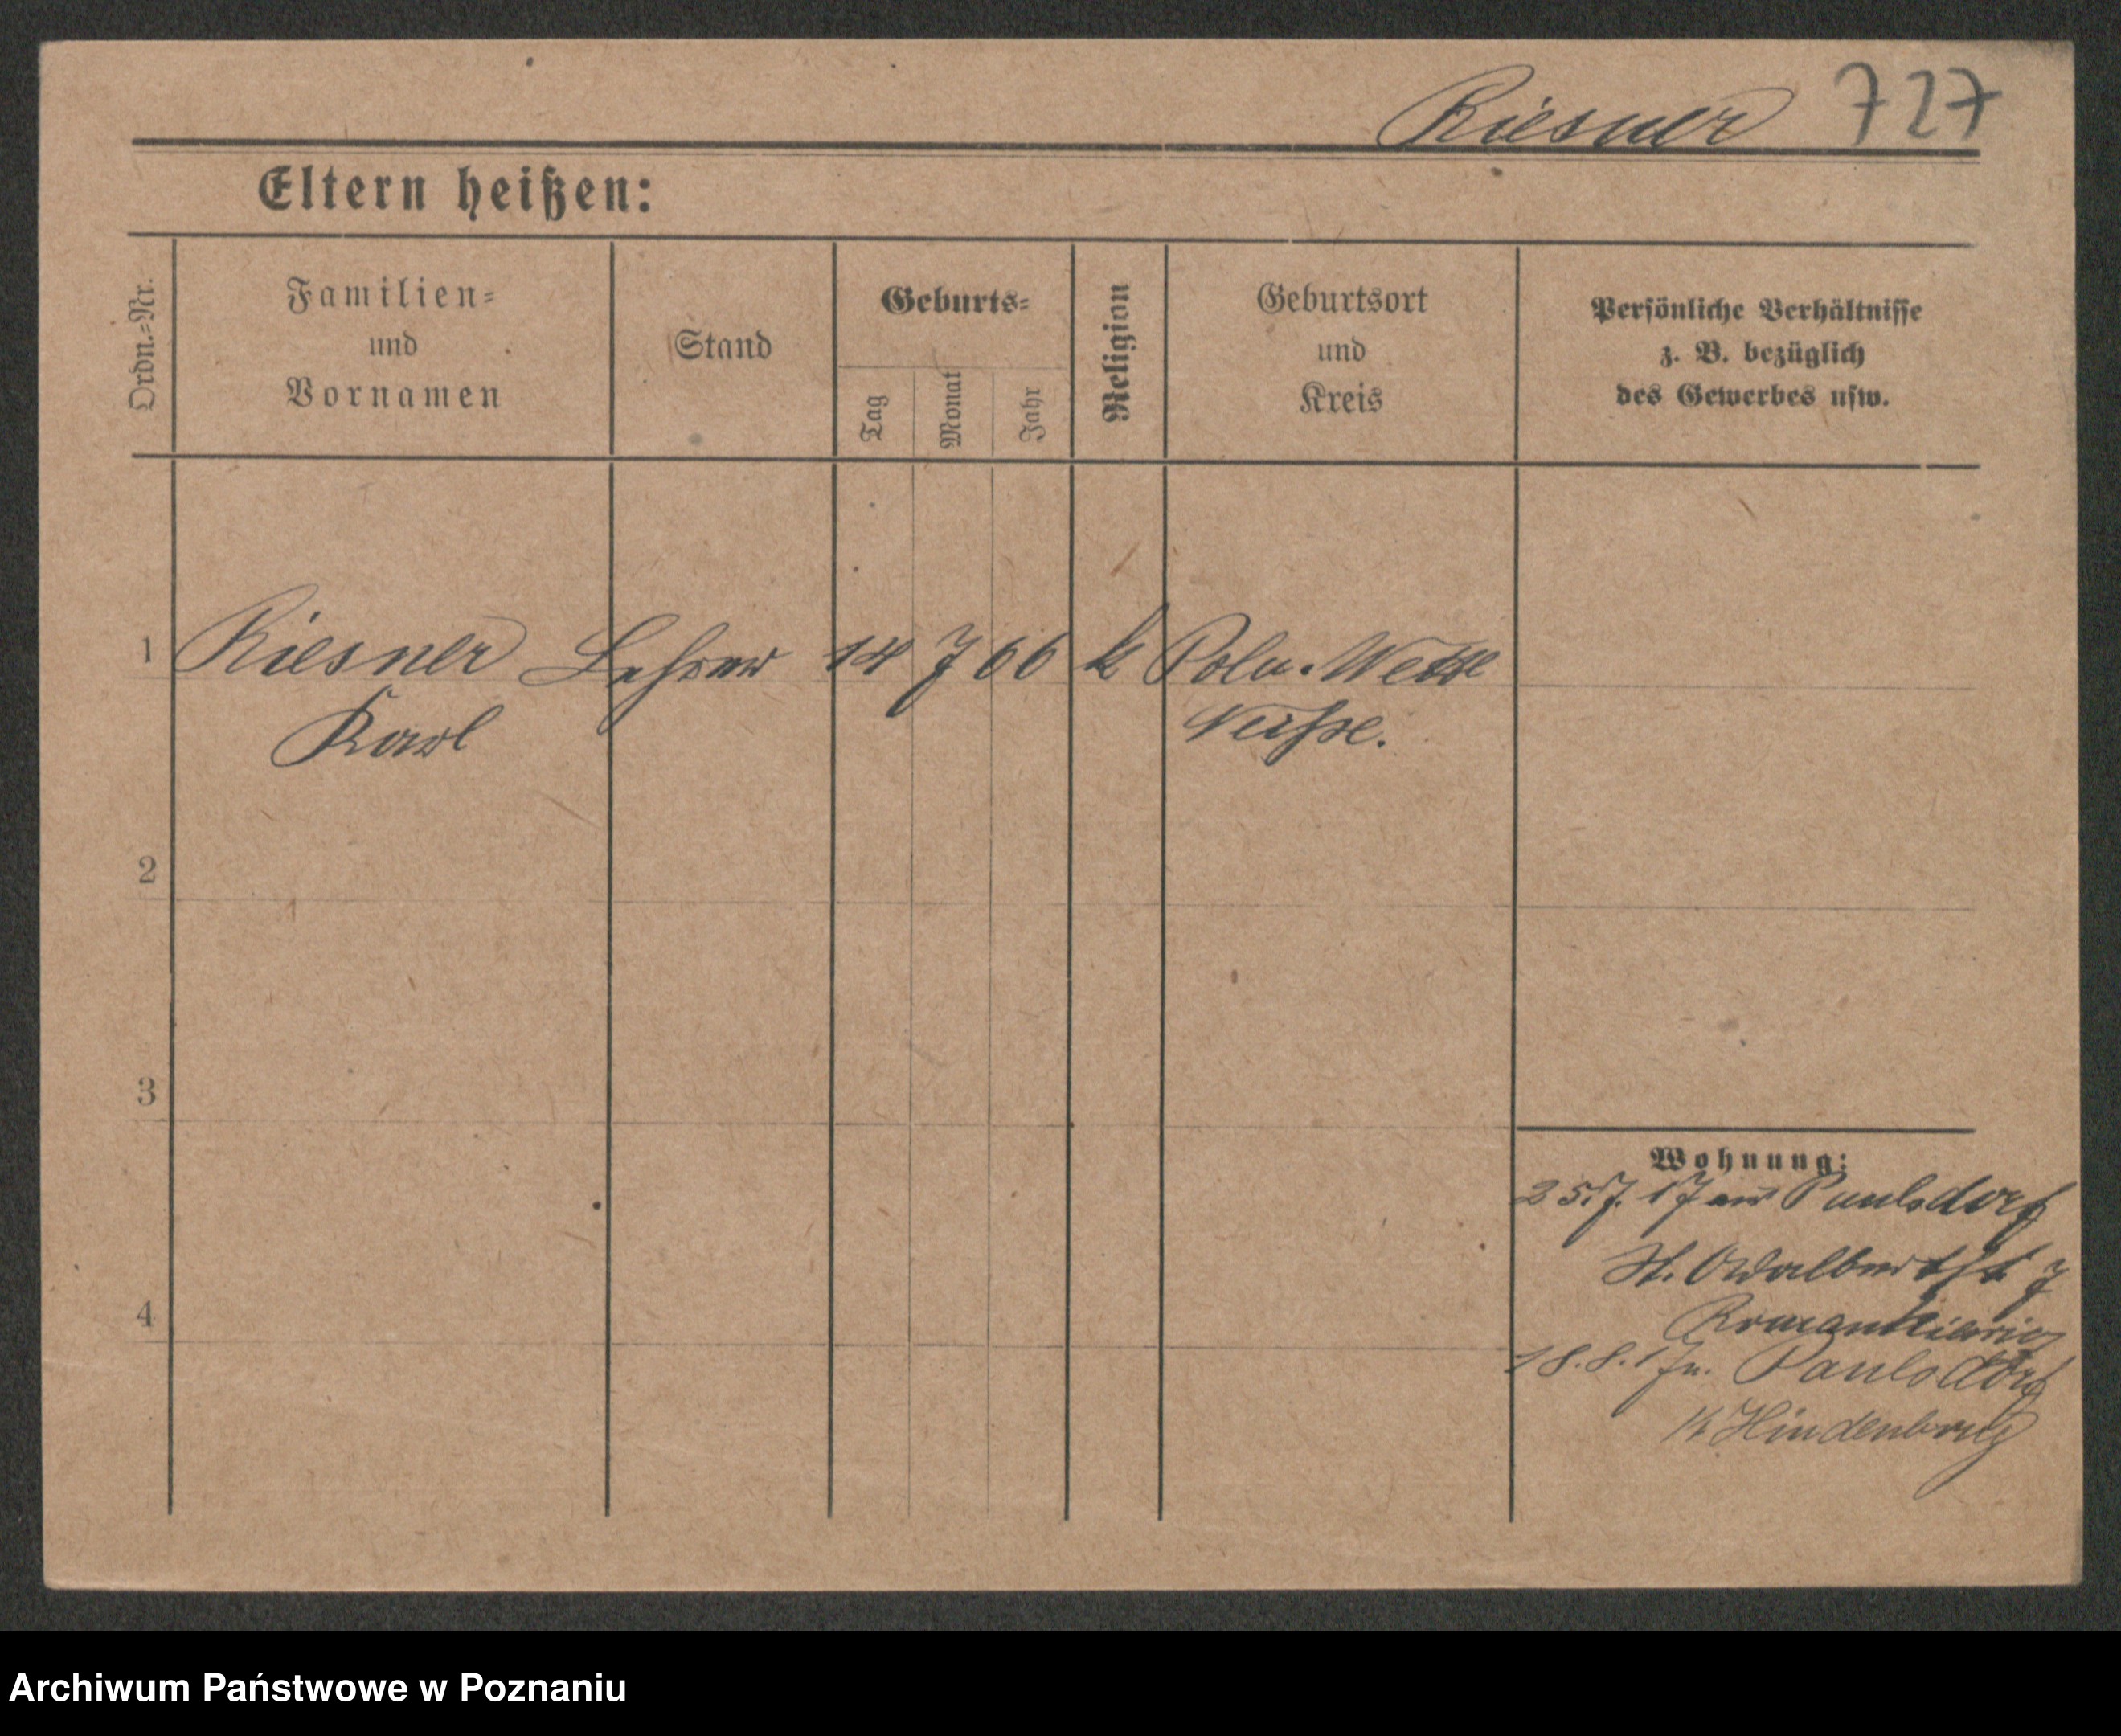 Riesner 727
Eltern heißen:
Ordn.-Nr.
Familien-
und
Vornamen
Stand
Geburts-
Tag
Monat
Jahr
Religion
Geburtsort
und
Kreis
Persönliche Verhältnisse
z. B. bezüglich
des Gewerbes usw.
1 Riesner Lehrer 14 7 66 k Poln. Wette
Karl Neisse.
2
3
4
Wohnung:
25.7.17 aus Paulsdorf
St. Adalbertstr 7
18.8.17 n. Paulsdorf
Hindenburg
Archiwum Państwowe w Poznaniu